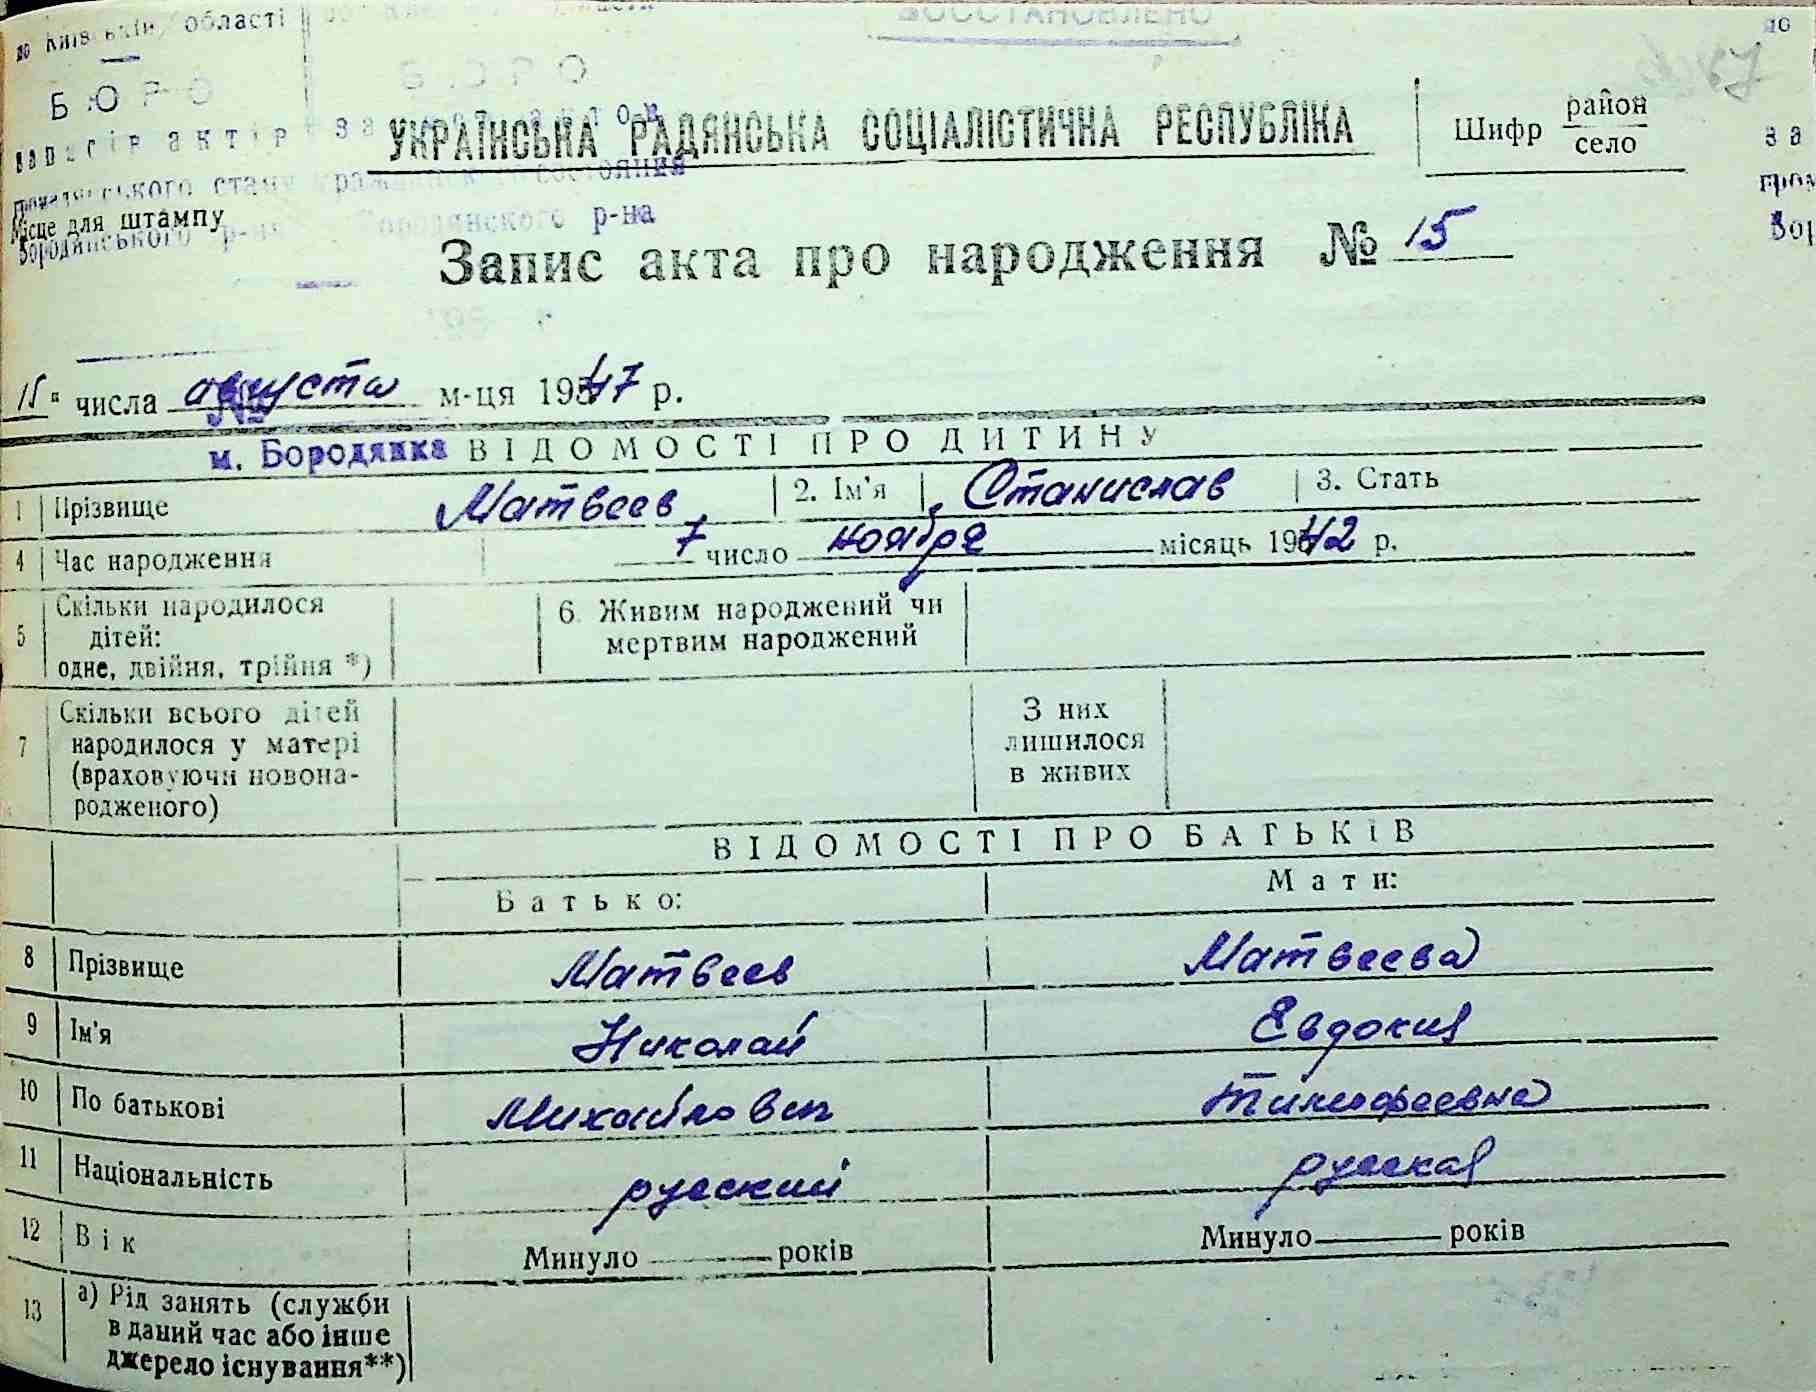 по Київській області
ВОССТАНОВЛЕНО
БЮРО
БЮРО
записів актів
громадянського стану гражданского состояния
Бородянського р-на Бородянского р-на
УКРАЇНСЬКА РАДЯНСЬКА СОЦІАЛІСТИЧНА РЕСПУБЛІКА
Шифр район
село
Місце для штампу
Запис акта про народження № 15
15" числа августа м-ця 1947 р.
№
м. Бородянка
ВІДОМОСТІ ПРО ДИТИНУ
1 Прізвище Матвеев 2. Ім'я Станислав 3. Стать
4 Час народження 7 число ноября місяць 1942 р.
5 Скільки народилося
дітей:
одне, двійня, трійня *)
6. Живим народжений чи
мертвим народжений
7 Скільки всього дітей
народилося у матері
(враховуючи новона-
родженого)
З них
лишилося
в живих
ВІДОМОСТІ ПРО БАТЬКІВ
Батько: Мати:
8 Прізвище Матвеев Матвеева
9 Ім'я Николай Евдокия
10 По батькові Михайлович Тимофеевна
11 Національність русский русская
12 Вік Минуло років Минуло років
13 а) Рід занять (служби
в даний час або інше
джерело існування**)